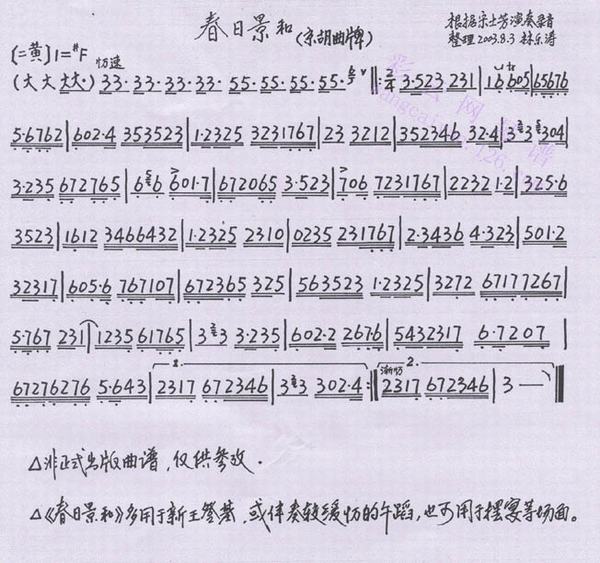 春日景和(京胡曲牌)
根据宋士芳演奏录音
整理 2003.8.3 林乐涛
(二黄) 1=#F 快速
(大 大 大大·) 33·33·33·33· 55·55·55·55· 2/4 3·523 231|1 6 605|65676
5·6762|602·4 353523|1·2325 3231767|23 3212|352346 32·4|3 3 3 5 304|
3·235 672765|6 5 6 601·7|672065 3·523|706 7231767|2232 1·2|325·6
3523|1612 3466432|1·2325 2310|0235 231767|2·3436 4·323|501·2
32317|605·6 767107|672365 325|563523 1·2325|3272 67177267|
5·767 231|1235 61765|3 3 3 3·235|602·2 2676|5432317 6·7207|
67276276 5·643|2317 672346|3 3 3 302·4:|2317 672346|3 — )
1. 渐慢 2.
△非正式出版曲谱,仅供参改.
△《春日景和》多用于新王登基,或伴奏较缓慢的午蹈,也可用于摆宴等场面。